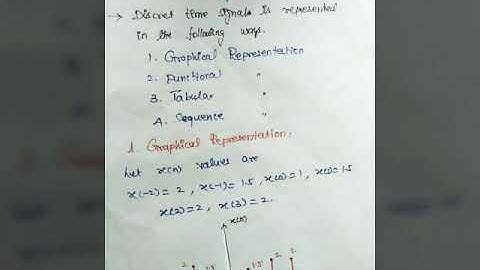 → Discret time signals is represented
in the following ways.
1. Graphical Representation
2. Functional "
3. Tabular "
4. Sequence "
1. Graphical Representation:
Let x(n) values are
x(-2) = 2, x(-1) = 1.5, x(0) = 1, x(1) = 1.5
x(2) = 2, x(3) = 2.
x(n)
2 1.5 1.5 2 2